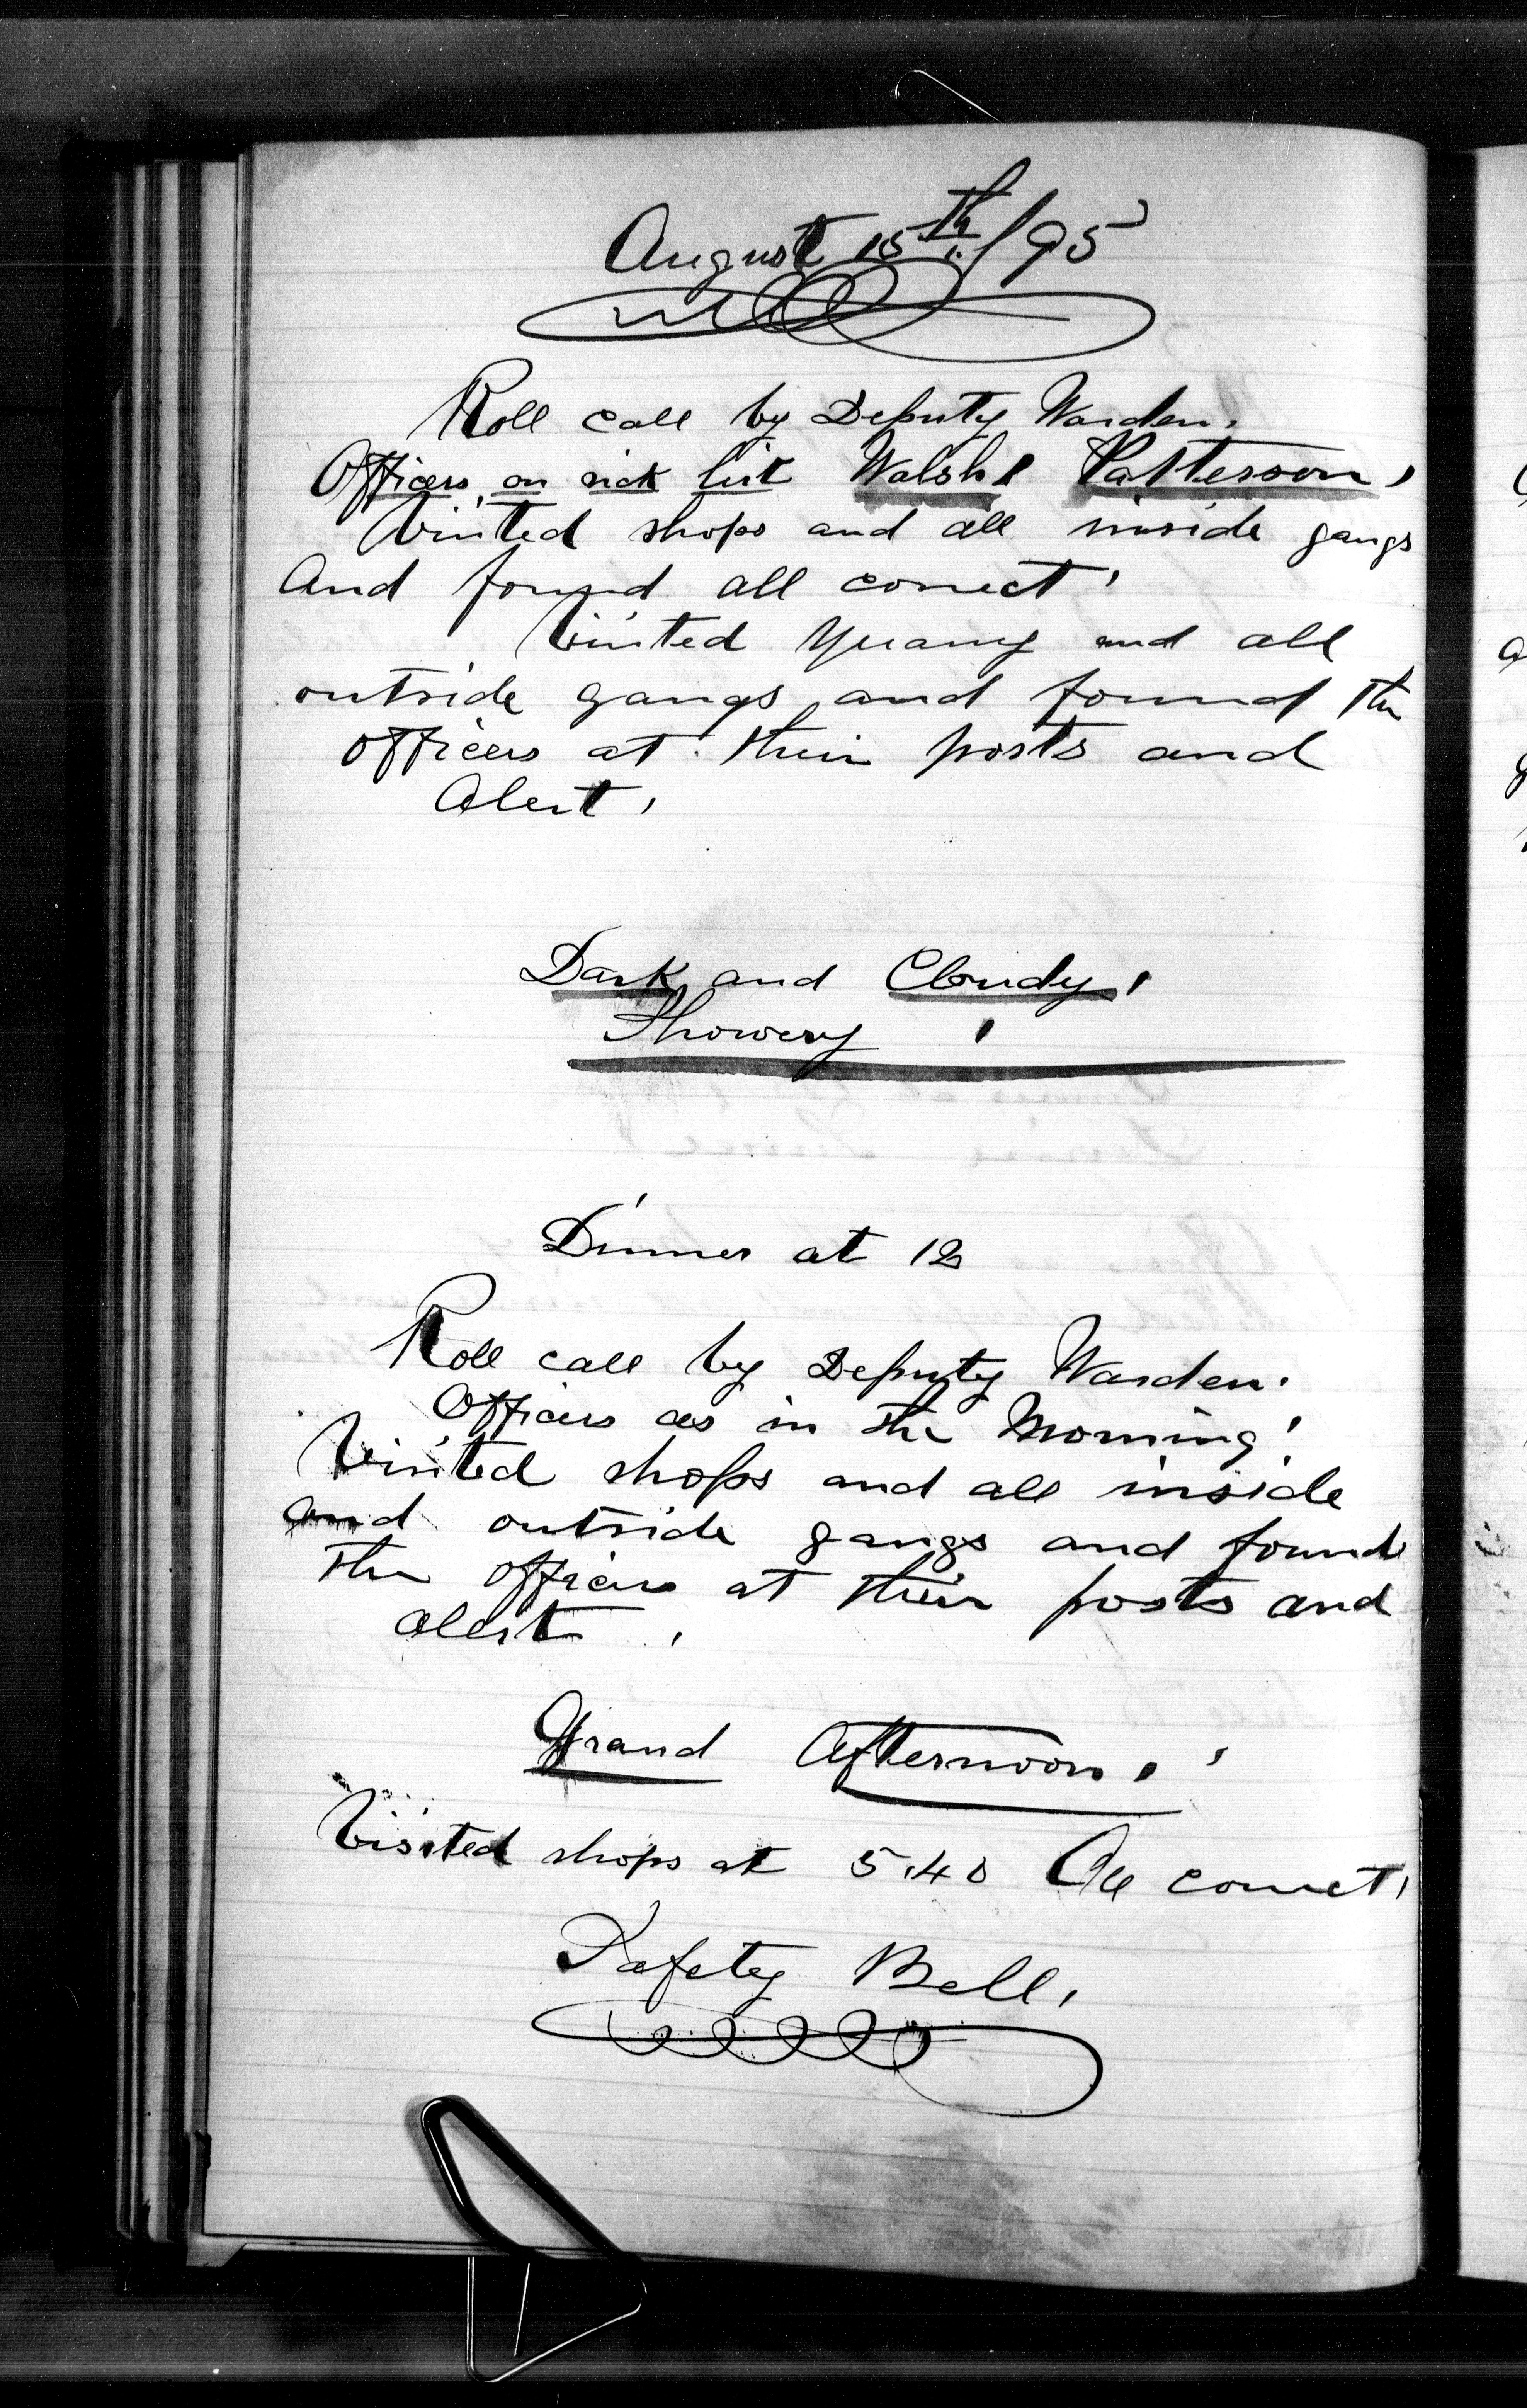 August 15th/95
Roll call by Deputy Warden.
Officers on sick list Walsh & Patterson,
Visited shops and all inside gangs
And found all correct,
Visited Quarry and all
outside gangs and found the
officers at their posts and
Alert,
Dark and Cloudy,
Showery,
Dinner at 12
Roll call by Deputy Warden.
Officers as in the Morning.
Visited shops and all inside
and outside gangs and found
the officers at their posts and
alert,
Grand Afternoon,
Visited shops at 5.40 All correct,
Safety Bell,